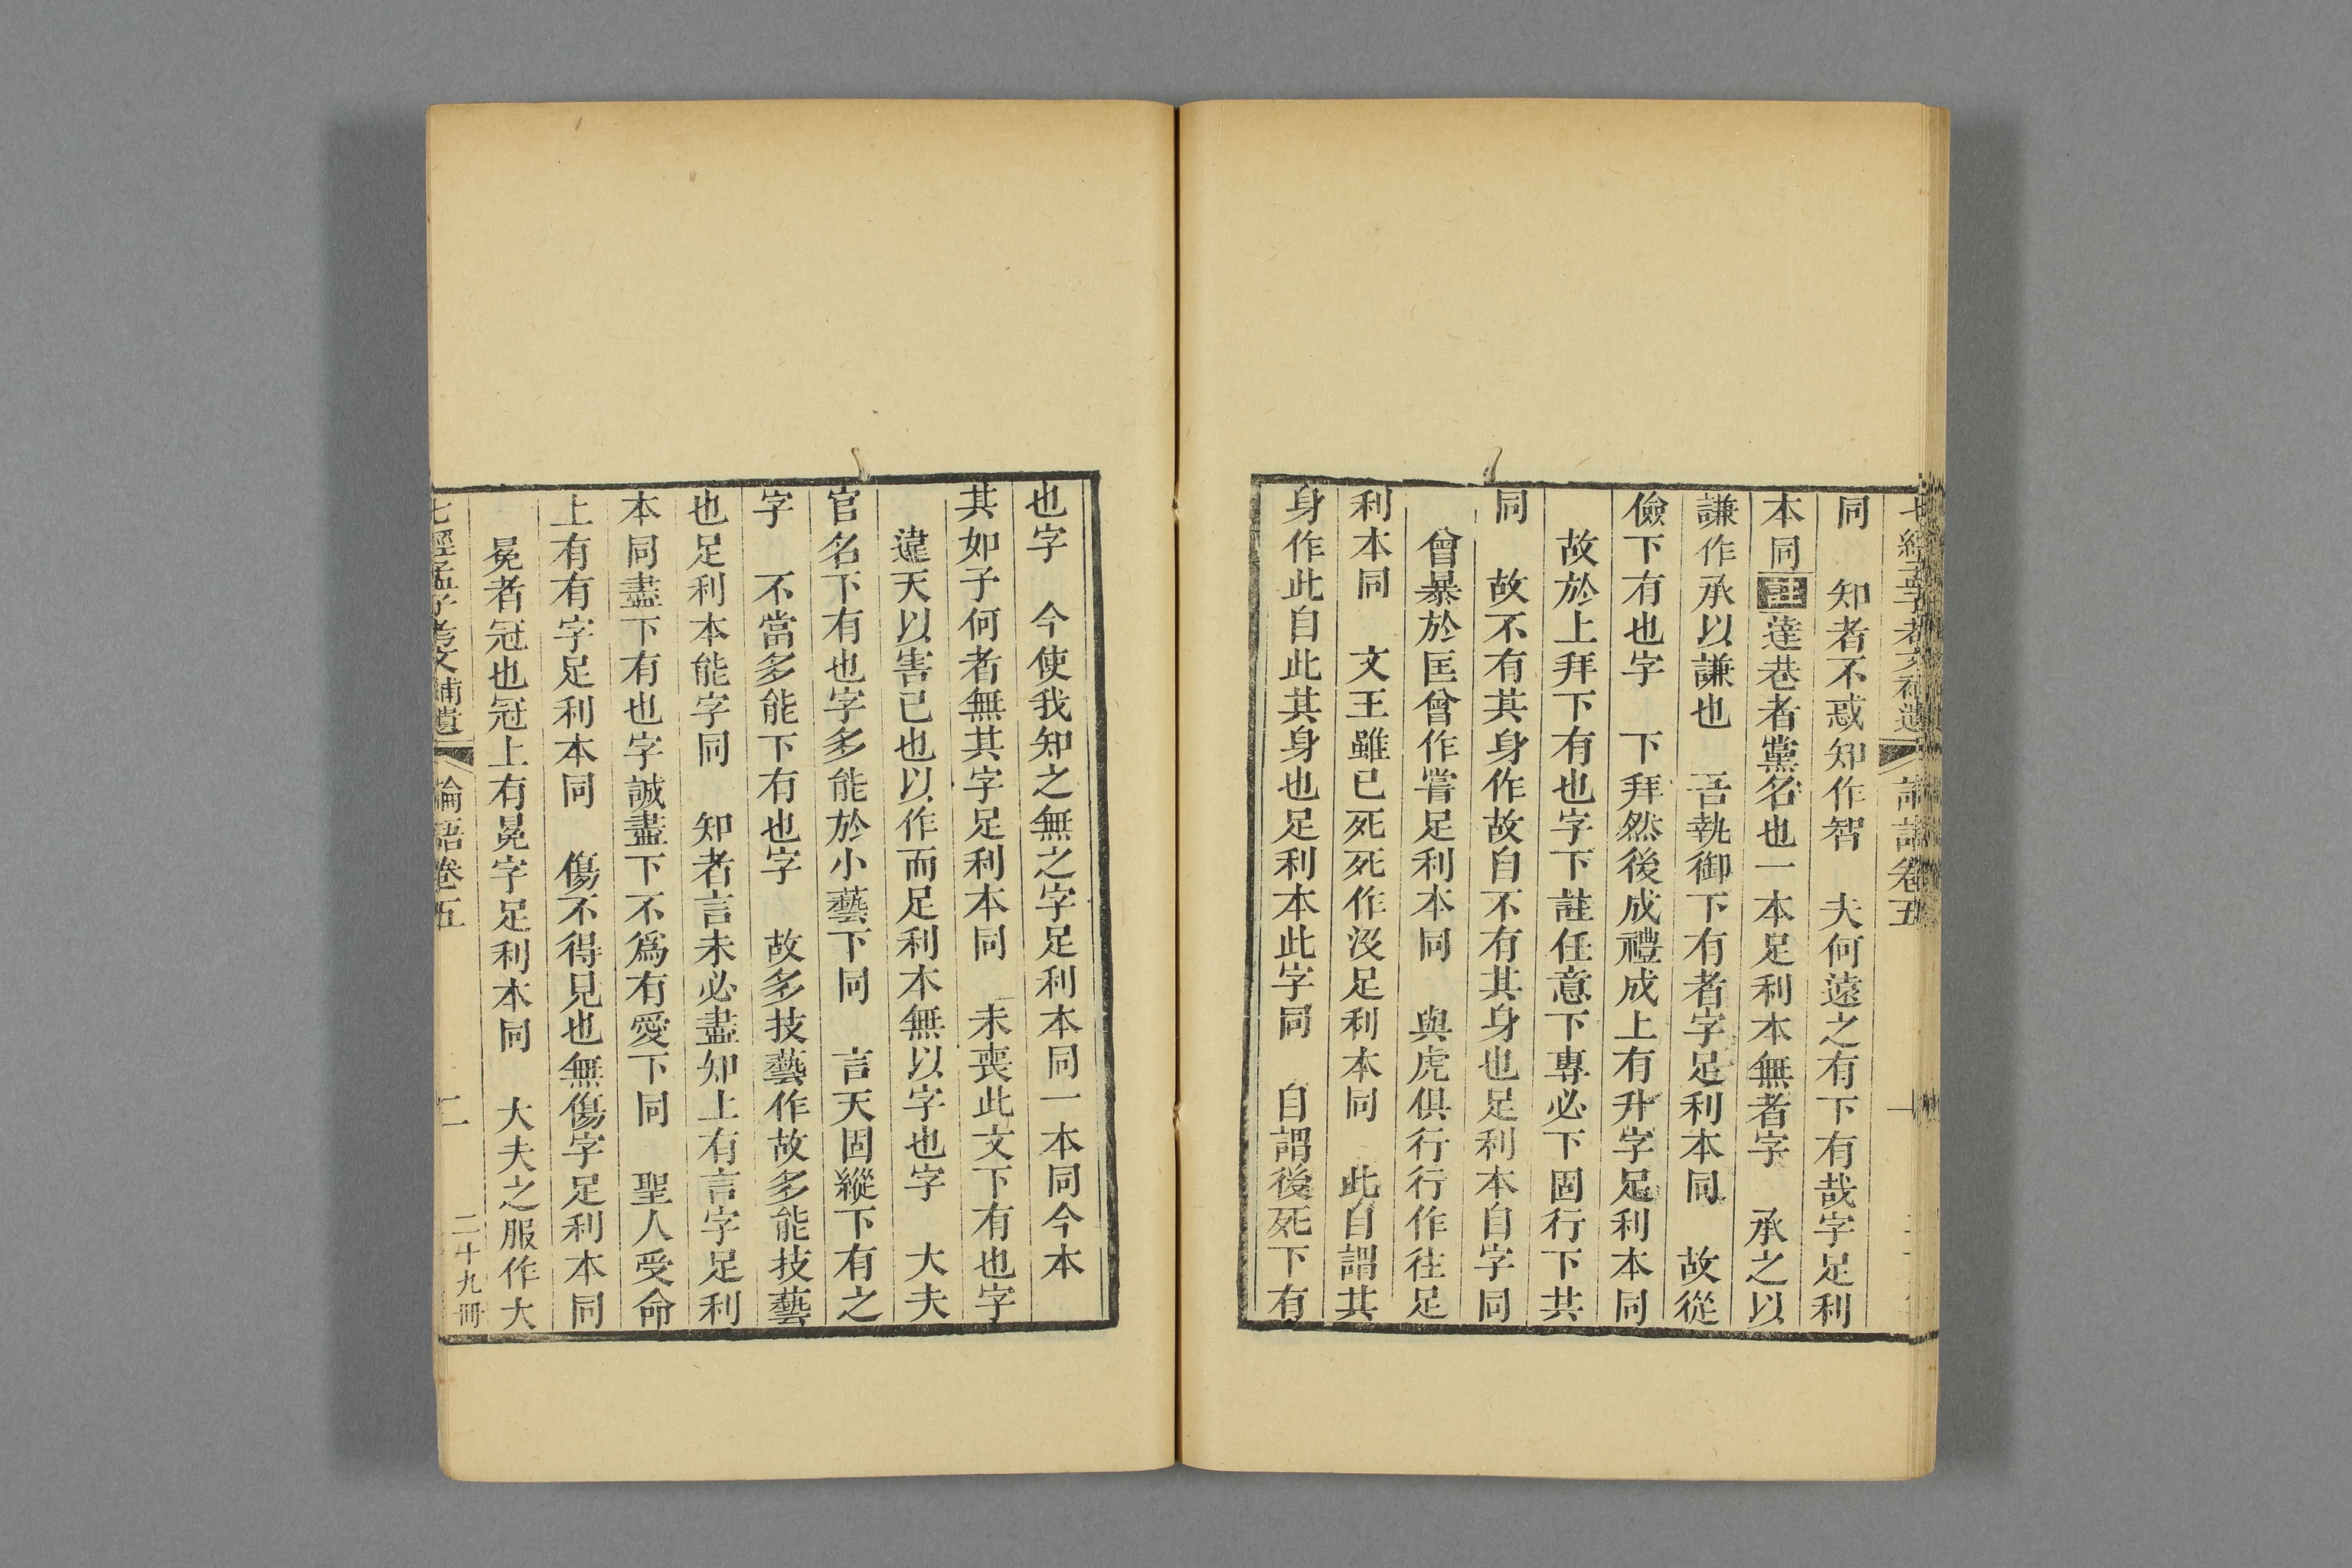 七經孟子考文補遺 論語卷五 一
同 知者不惑知作智 夫何遠之有下有哉字足利
本同註達巷者黨名也一本足利本無者字 承之以
謙作承以謙也 吾執御下有者字足利本同 故從
儉下有也字 下拜然後成禮成上有升字足利本同
故於上拜下有也字下註任意下專必下固行下共
同 故不有其身作故自不有其身也足利本自字同
曾暴於匡曾作嘗足利本同 與虎俱行行作往足
利本同 文王雖已死死作沒足利本同 此自謂其
身作此自此其身也足利本此字同 自謂後死下有
也字 今使我知之無之字足利本同一本同今本
其如子何者無其字足利本同 未喪此文下有也字
違天以害已也以作而足利本無以字也字 大夫
官名下有也字多能於小藝下同 言天固縱下有之
字 不當多能下有也字 故多技藝作故多能技藝
也足利本能字同 知者言未必盡知上有言字足利
本同盡下有也字誠盡下不爲有愛下同 聖人受命
上有有字足利本同 傷不得見也無傷字足利本同
冕者冠也冠上有冕字足利本同 大夫之服作大
七經孟子考文補遺 論語卷五 二 二十九冊